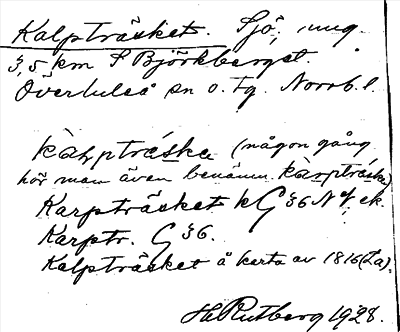 Kalpträsket. Sjö, ung.
3,5 km S Björkberget.
Överluleå sn o. tg. Norrb. l.
kàlpträ́ska (någon gång
hör man även benämn. kàrpträ́ska)
Karpträsket k G 36 N ek.
Karptr. G 36.
Kalpträsket å karta av 1816 (La).
H. Rutberg 1928.